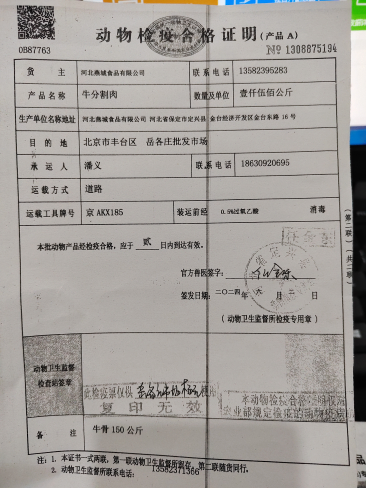 动物检疫合格证明(产品A)
0B87763
№ 1308875194
货主 河北燕城食品有限公司 联系电话 13582395283
产品名称 牛分割肉 数量及单位 壹仟伍佰公斤
生产单位名称地址 河北燕城食品有限公司 河北省保定市定兴县 金台经济开发区金台东路 16 号
目的地 北京市丰台区 岳各庄批发市场
承运人 潘义 联系电话 18630920695
运载方式 道路
运载工具牌号 京 AKX185 装运前经 0.5%过氧乙酸 消毒
本批动物产品经检疫合格,应于 贰 日内到达有效。
官方兽医签字:
签发日期:二〇二四年 六 月 二 日
(动物卫生监督所检疫专用章)
(第二联)(共二联)
动物卫生监督
检查站签章
复印无效
本动物检疫合格证明仅
农业部规定检疫的动物疫病
备注 牛骨 150 公斤
注:1. 本证书一式两联,第一联动物卫生监督所留存,第二联随货同行。
2. 动物卫生监督所联系电话: 13582371366